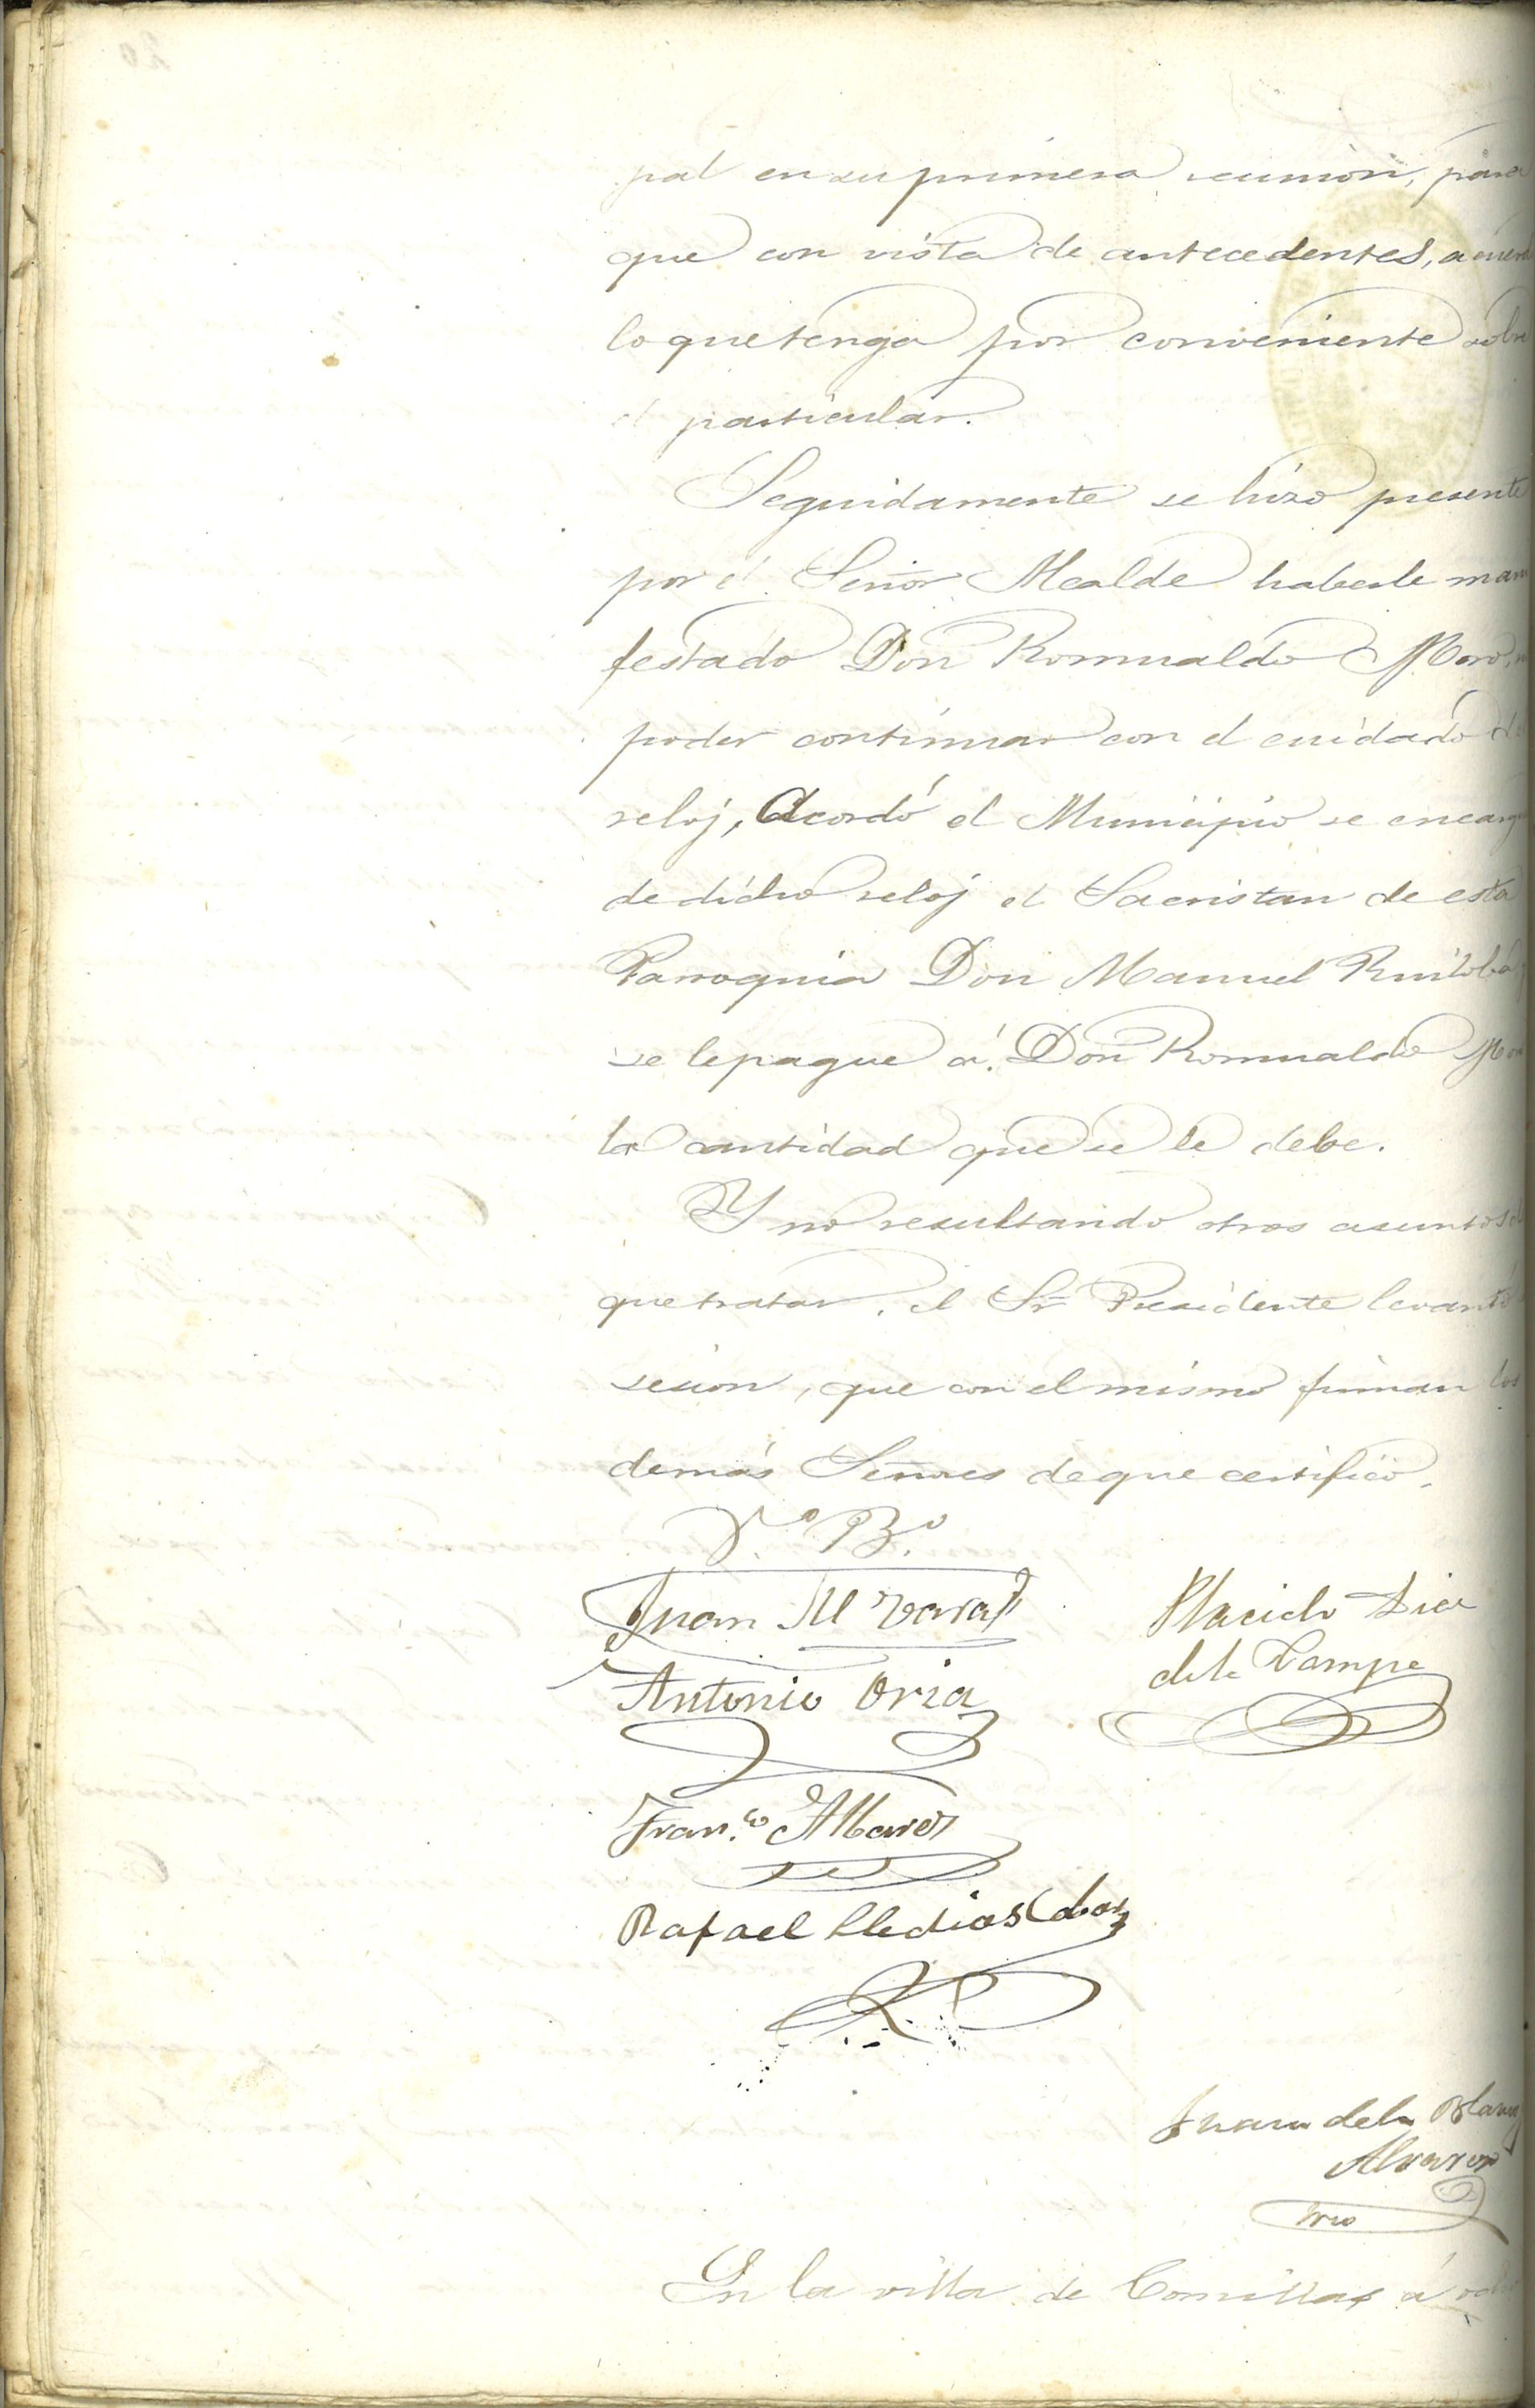 pal en su primera reunion, para
que con vista de antecedentes, acuer
lo que tenga por conveniente sobre
el particular.
Seguidamente se hizo presente
por el Señor Alcalde haberle mani
festado Don Romualdo Moro,
poder continuar con el cuidado del
reloj, Acordó el Municipio se encarg
de dicho reloj el Sacristan de esta
Parroquia Don Manuel Ruiloba
se le pague á Don Romualdo Moro
la cantidad que se le debe.
Y no resultando otros asuntos de
que tratar, el Sr Presidente levantó
sesion, que con el mismo firman los
demás Señores de que certifico.
V.º B.º
Juan M
Antonio Oria
Placido Diaz
de la Campa
Fran.co Albarez
Rafael
Juan de la
Alvarez
Srio
En la villa de Comillas á ocho